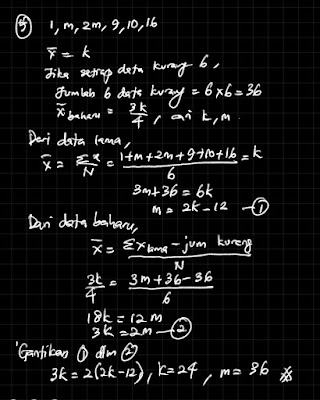 1, m, 2m, 9, 10, 16
x̄ = k
Jika setiap data kurang 6,
Jumlah 6 data kurang = 6x6 = 36
x̄ baharu = 3k/4, cari k, m.
Dari data lama,
x̄ = Σx/N = (1+m+2m+9+10+16)/6 = k
3m+36 = 6k
m = 2k-12 — ①
Dari data baharu,
x̄ = (Σx lama - jum kurang)/N
3k/4 = (3m+36-36)/6
18k = 12m
3k = 2m — ②
Gantikan ① dlm ②
3k = 2(2k-12), k = 24, m = 36